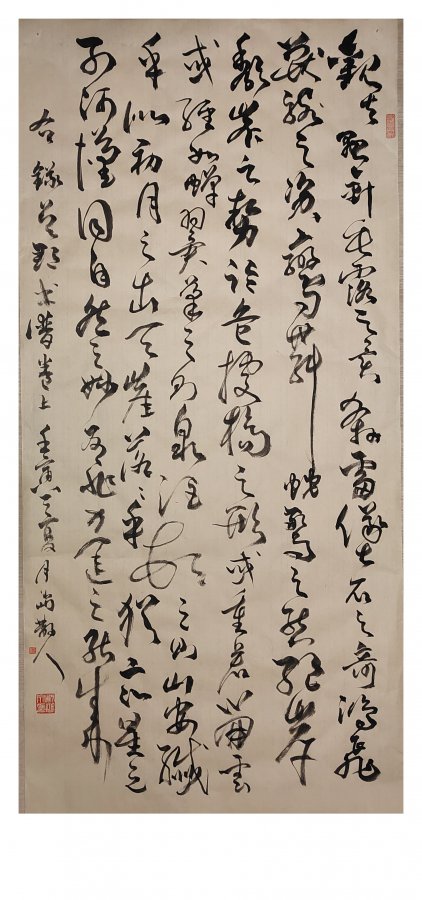 觀夫懸針垂露之異奔雷墜石之奇鴻飛
獸駭之資鸞舞蛇驚之態絕岸
頹峰之勢臨危據槁之形或重若崩雲
或輕如蟬翼導之則泉注頓之則山安纖
乎似初月之出天崖落〻乎猶眾星之
列河漢同自然之妙有非力運之能成
右錄吳郡書譜卷上壬寅夏月尚散人